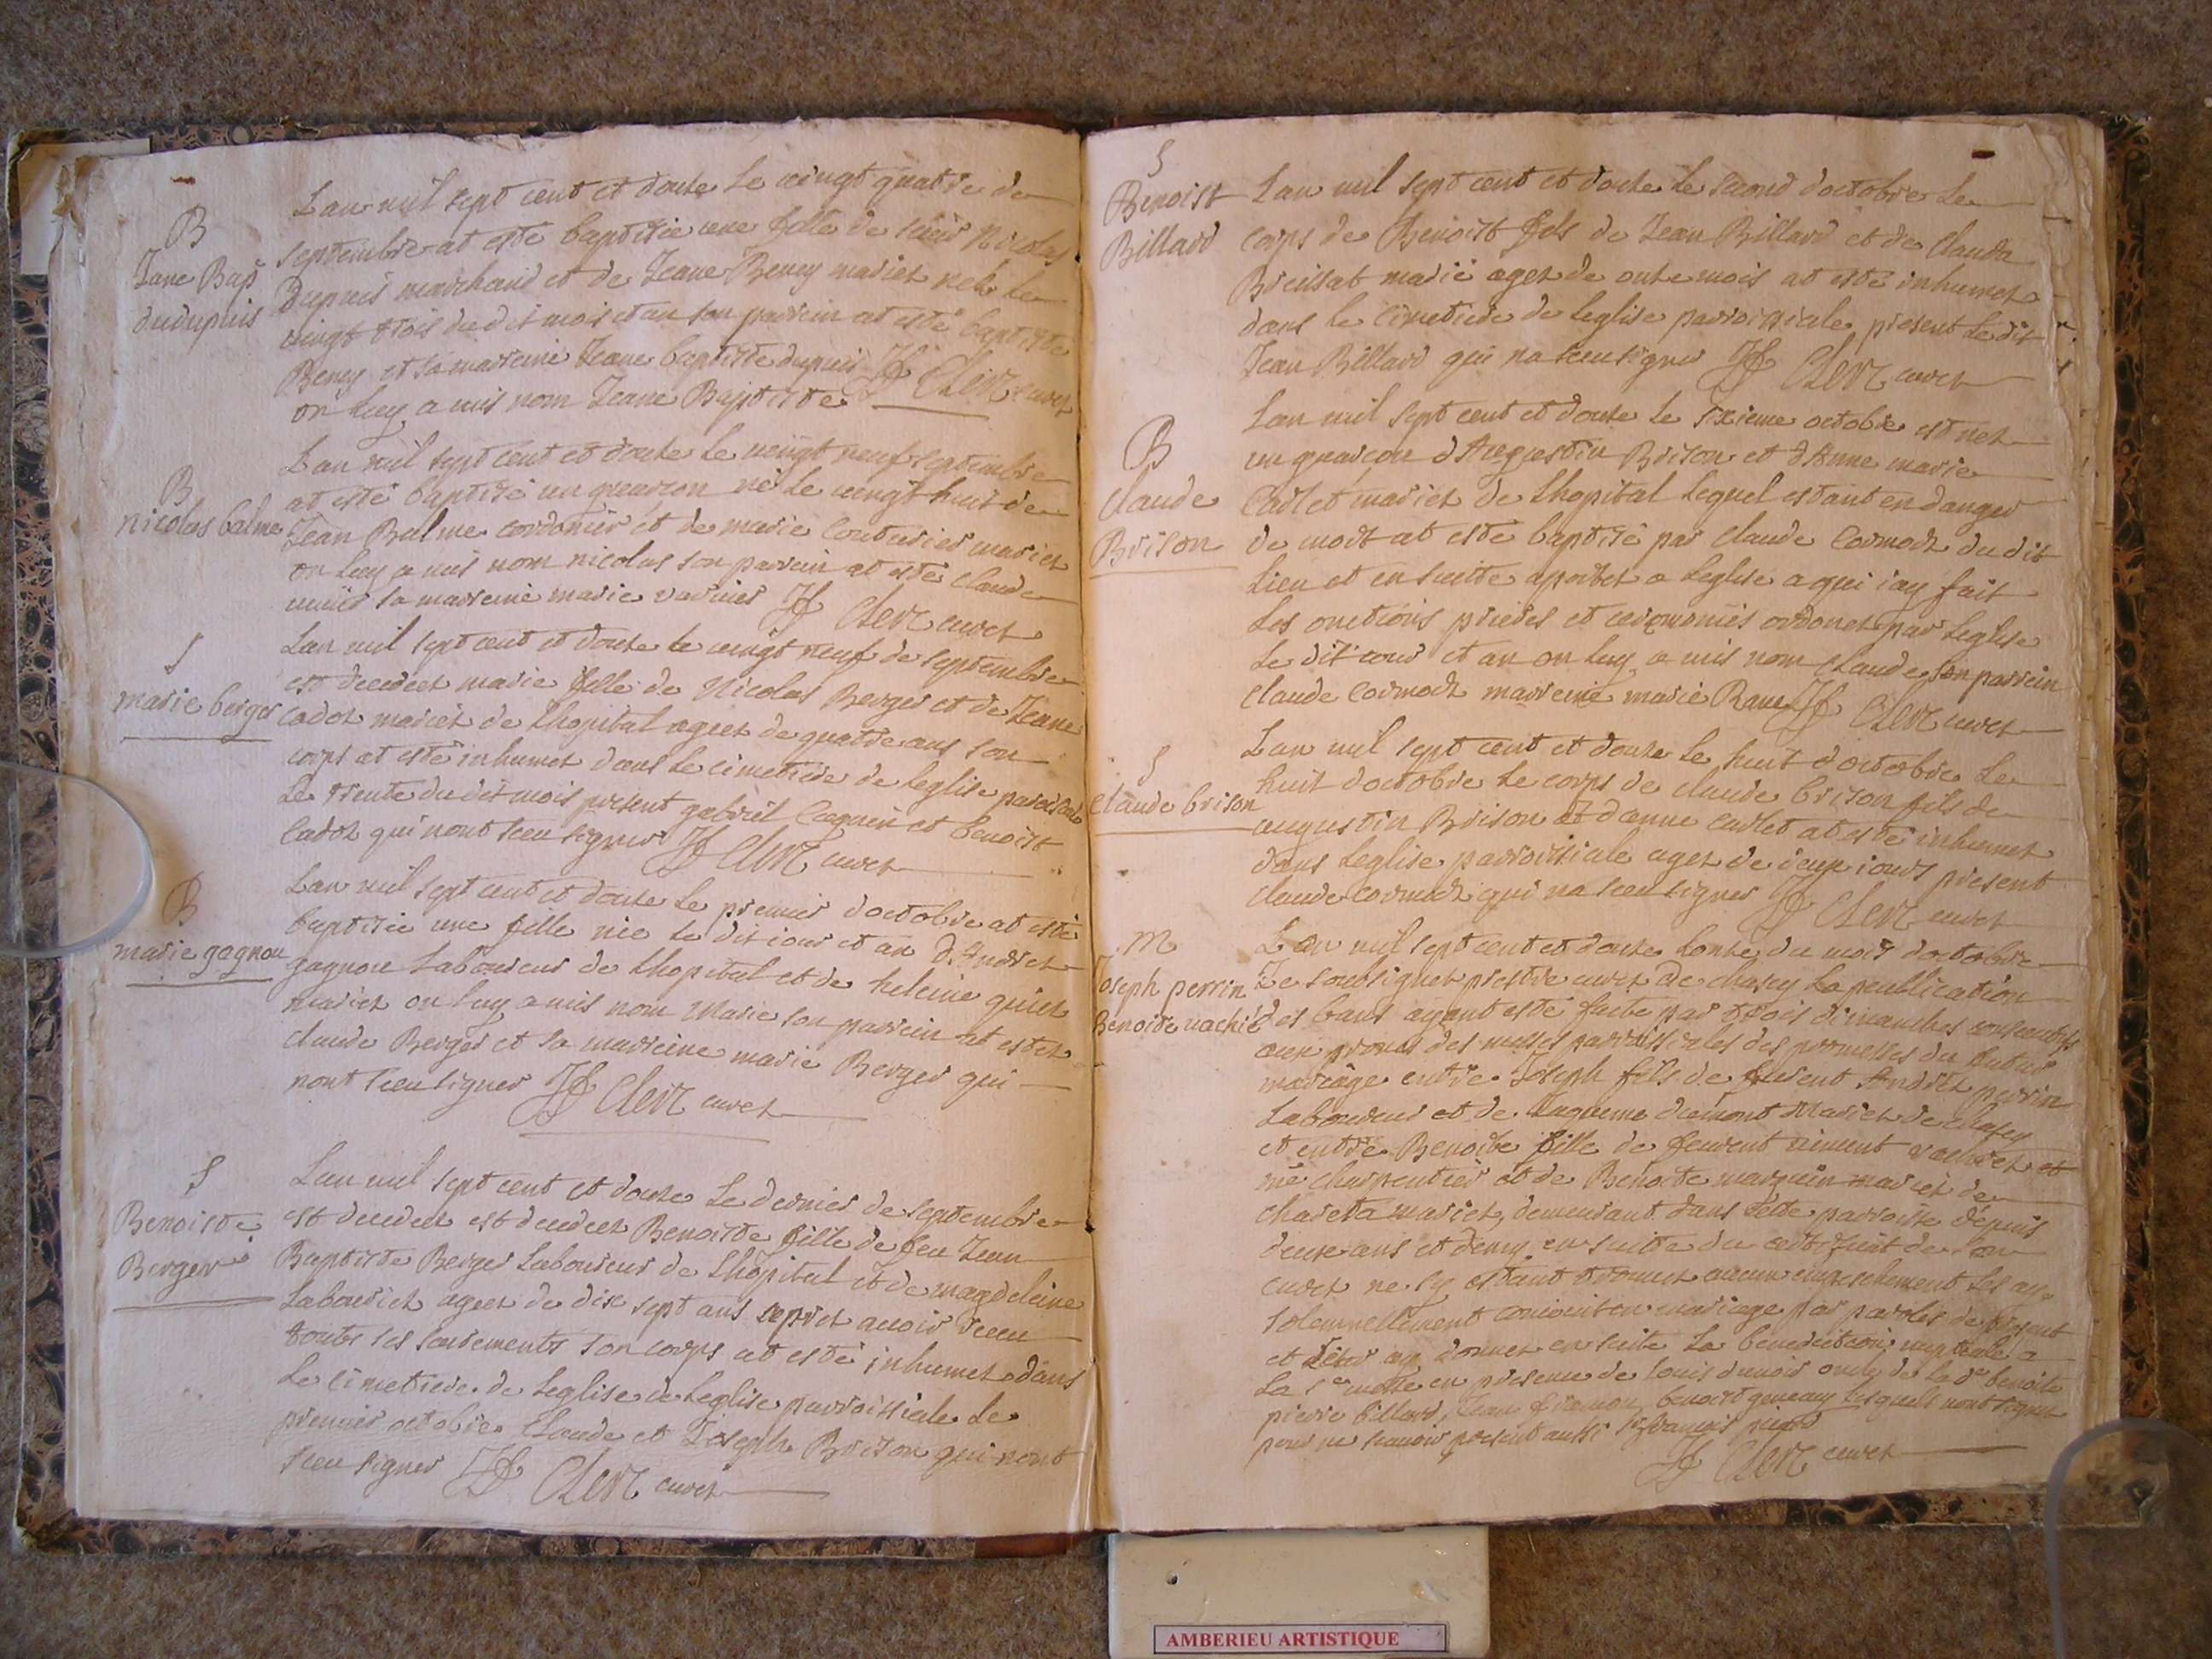 B
Jane Bap
dudupuis
Lan mil sept cent et douze Le vingt quatre de
septembre at esté baptisée une fille de sieur Nicolas
Dupuis marchand et de Jeane Beney mariez neé le
vingt trois du dit mois et an son parrein at esté baptiste
Beney et sa marreine Jeane baptiste dupuis JF Clerc curez
on Luy a mis nom Jeane Baptiste
B
nicolas balme
Lan mil sept cent et douze Le vingt neuf septembre
at esté baptisé un guarcon né Le vingt huit de
Jean Balme cordonier et de marie Couturier mariez
on Luy a mis nom nicolas son parrein at esté claude
sa marreine marie JF Clerc curez
S
marie berger
Lan mil sept cent et douze Le vingt neuf de septembre
est decedeez marie fille de Nicolas Berger et de Jeane
Cadoz mariez de Lhopital ageez de quatre ans son
corps at esté inhumez dans Le cimetiere de Leglise
Le trente du dit mois present gabriel et benoist
Cadoz qui nont sceu signer JF Clerc curez
B
marie gagnon
Lan mil sept cent et douze Le premier doctobre at esté
baptisée une fille née Le dit iour et an d'Andrez
gagnon Laboureur de Lhopital et de heleine
mariez on Luy a mis nom Marie son parrein at estez
claude Berger et sa marreine marie Berger qui
nont sceu signer JF Clerc curez
S
Benoiste
Berger
Lan mil sept cent et douze Le dernier de septembre
est decedeez est decedeez Benoiste fille de feu Jean
Baptiste Berger Laboureur de Lhopital et de magdeleine
Labouriez ageez de dix sept ans aprez avoir receu
touts ses sacrements son corps at esté inhumez dans
Le cimetiere de Leglise de Leglise parroissiale Le
premier octobre Claude et Joseph Brison qui nont
sceu signer JF Clerc curez
S
Benoist
Billard
Lan mil sept cent et douze Le second doctobre Le
corps de Benoist fils de Jean Billard et de Clauda
marié agez de onze mois at esté inhumez
dans Le cimetiere de Leglise parroissiale present Le dit
Jean Billard qui na sceu signer JF Clerc curez
B
Claude
Brison
Lan mil sept cent et douze Le sixieme octobre est nez
un guarcon d'Augustin Brison et d'Anne marie
Carlet mariez de Lhopital Lequel estant en danger
de mort at esté baptisé par Claude Cormoz du dit
Lieu et en suitte aportez a Leglise a qui iay fait
Les onctions prieres et ceremonies ordonez par Leglise
Le dit iour et an on Luy a mis nom Claude son parrein
Claude Cormoz marreine marie JF Clerc curez
S
Claude brison
Lan mil sept cent et douze Le huit doctobre Le
huit doctobre Le corps de claude brison fils de
augustin Brison et danne carlet at esté inhumez
dans Leglise parroissiale agez de deux iours present
claude Cormoz qui na sceu signer JF Clerc curez
M
Joseph perrin
Benoite vachié
Lan mil sept cent et douze Lonze du mois doctobre
Je soussignez prestre curez de chasey La peublication
des bans ayant esté faite par trois dimanches consecutifs
aux prones des messes parroissiales des promesses du futur
mariage entre Joseph fils de Andrez perrin
Laboureur et de mariez de chasey
et entre Benoite fille de vincent et
charpentier et de Benoite
mariez, demeurant dans cette parroisse depuis
deux ans et demy en suitte du de son
curez ne sy estant trouvez aucun empechement Les ay
solemnellement conioint en mariage par paroles de present
et Leur ay donnez en suite La benediction nuptiale a
La messe en presence de Louis oncle de La dte benoite
pierre billard, Jean benoist Lesquels nont signez
pour ne scavoir present aussi
JF Clerc curez
AMBERIEU ARTISTIQUE